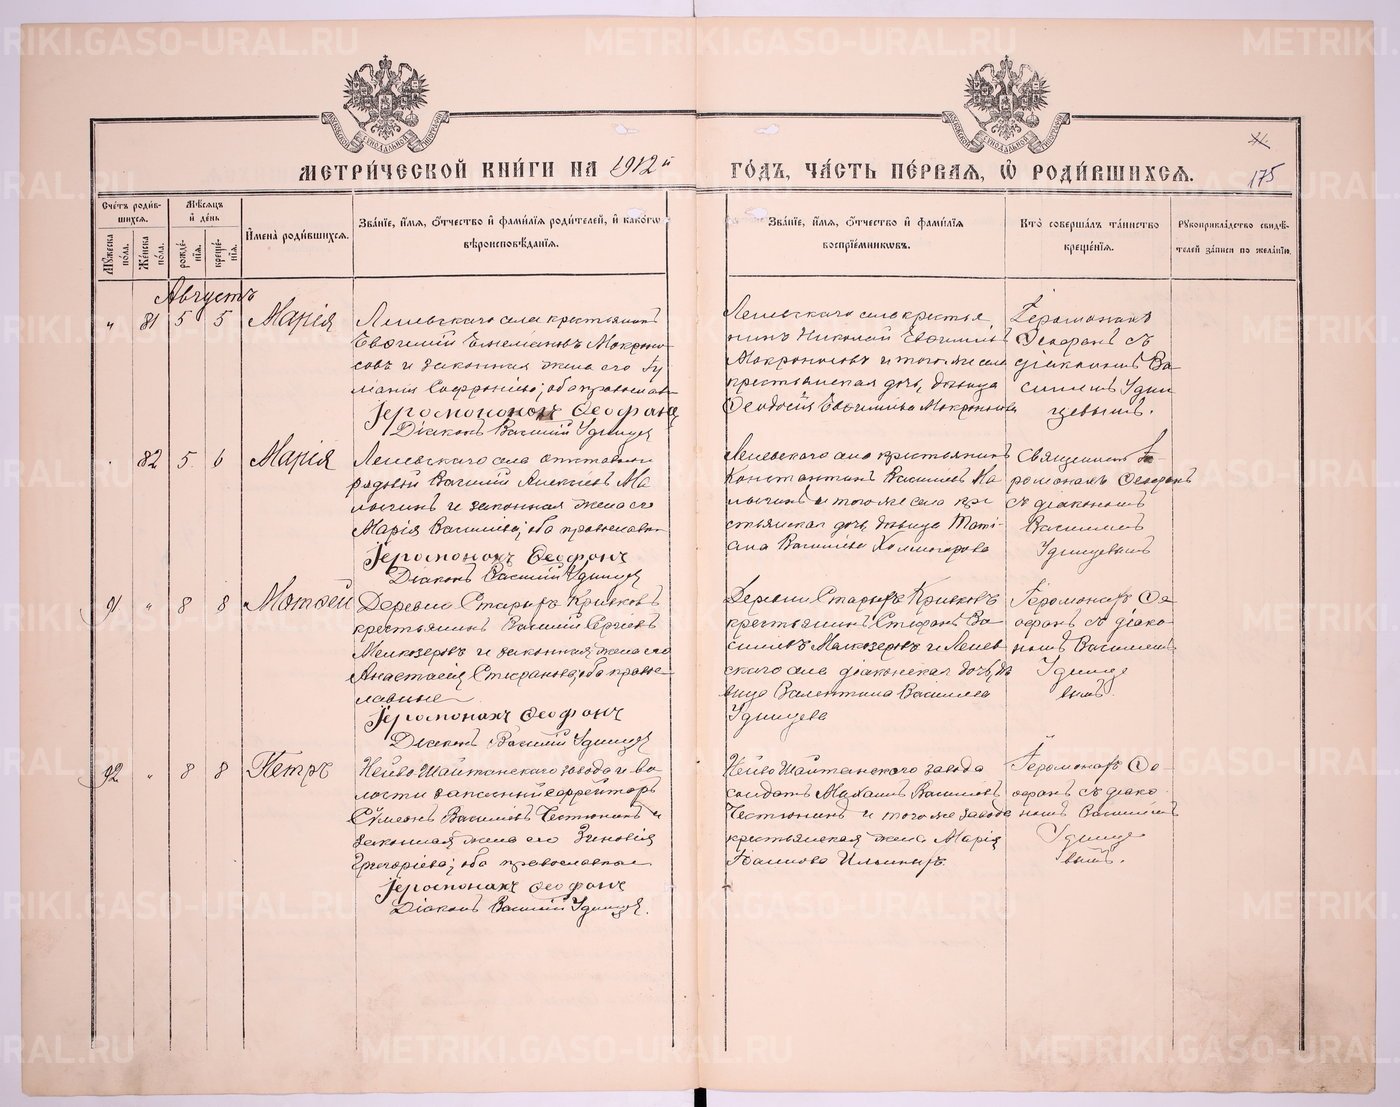 МЕТРИ́ЧЕСКОЙ КНИ́ГИ НА 1912й ГО́ДЪ, ЧА́СТЬ ПЕ́РВАЯ, Ѡ РОДИ́ВШИХСЯ.
175
Сче́тъ роди́вшихся.
Му́жеска по́ла.
Же́нска по́ла.
Мѣ́сяцъ и де́нь
рожде́нія.
креще́нія.
Имена́ роди́вшихся.
Зва́ніе, и́мя, о́тчество и фами́лія роди́телей, и како́гѡ
вѣроисповѣ́данія.
Зва́ніе, и́мя, о́тчество и фами́лія
воспріе́мниковъ.
Кто̀ соверша́лъ та́инство
креще́нія.
Рукоприкла́дство свидѣ́телей за́писи по жела́нію.
Августъ
" 81 5 5 Марія
Леневскаго села крестьянинъ
Евѳимій Мокроно-
совъ и законная жена его Іу-
ліанія Софроніева; оба православн.
Іеромонахъ Ѳеофанъ
Діаконъ Василій Удинцев
Леневскаго села крестья
нинъ Николай Евѳиміевъ
Мокроносовъ и того же села
крестьянская дочь, девица
Ѳеодосія Евѳиміева Мокроносова
Іеромонахъ
Ѳеофанъ съ
діакономъ Ва-
силіемъ Удин
цевымъ.
82 5 6 Марія
Леневскаго села отставной
рядовой Василій Алексіевъ Ма
и законная жена его
Марія Василіева; оба православн.
Іеромонахъ Ѳеофанъ
Діаконъ Василій Удинцев
Леневскаго села крестьянинъ
Константинъ Василіевъ
и того же села кре
стьянская дочь, девица Тати-
ана Василіева Холмогорова
Священникъ
ромонахъ Ѳеофанъ
съ діакономъ
Василіемъ
Удинцевымъ
91 " 8 8 Матѳей
Деревни Старыхъ Кривковъ
крестьянинъ Василій Сергіевъ
Мелкозеровъ и законная жена его
Анастасія Стефанова; оба право-
славные
Іеромонахъ Ѳеофанъ
Діаконъ Василій Удинцев
Деревни Старыхъ Кривковъ
крестьянинъ Стефанъ Ва-
силіевъ Мелкозеровъ и Леневскаго села діаконская дочь, де
вица Валентина Василіева
Удинцева
Іеромонахъ Ѳе-
офанъ съ діако-
номъ Василіемъ
Удинце
вымъ.
92 " 8 8 Петръ
Нейво Шайтанскаго завода и во-
лости запасный ефрейторъ
Сѵмеонъ Василіевъ Честюнинъ и
законная жена его Зиновія
Григоріева; оба православные
Іеромонахъ Ѳеофанъ
Діаконъ Василій Удинцев.
Нейво Шайтанскаго завода
солдатъ Михаилъ Василіевъ
Честюнинъ и того же завода
крестьянская жена Марія
Іоаннова Ильиныхъ.
Іеромонахъ Ѳе-
офанъ съ діако
номъ Василіемъ
Удинце
вымъ.
METRIKI.GASO-URAL.RU